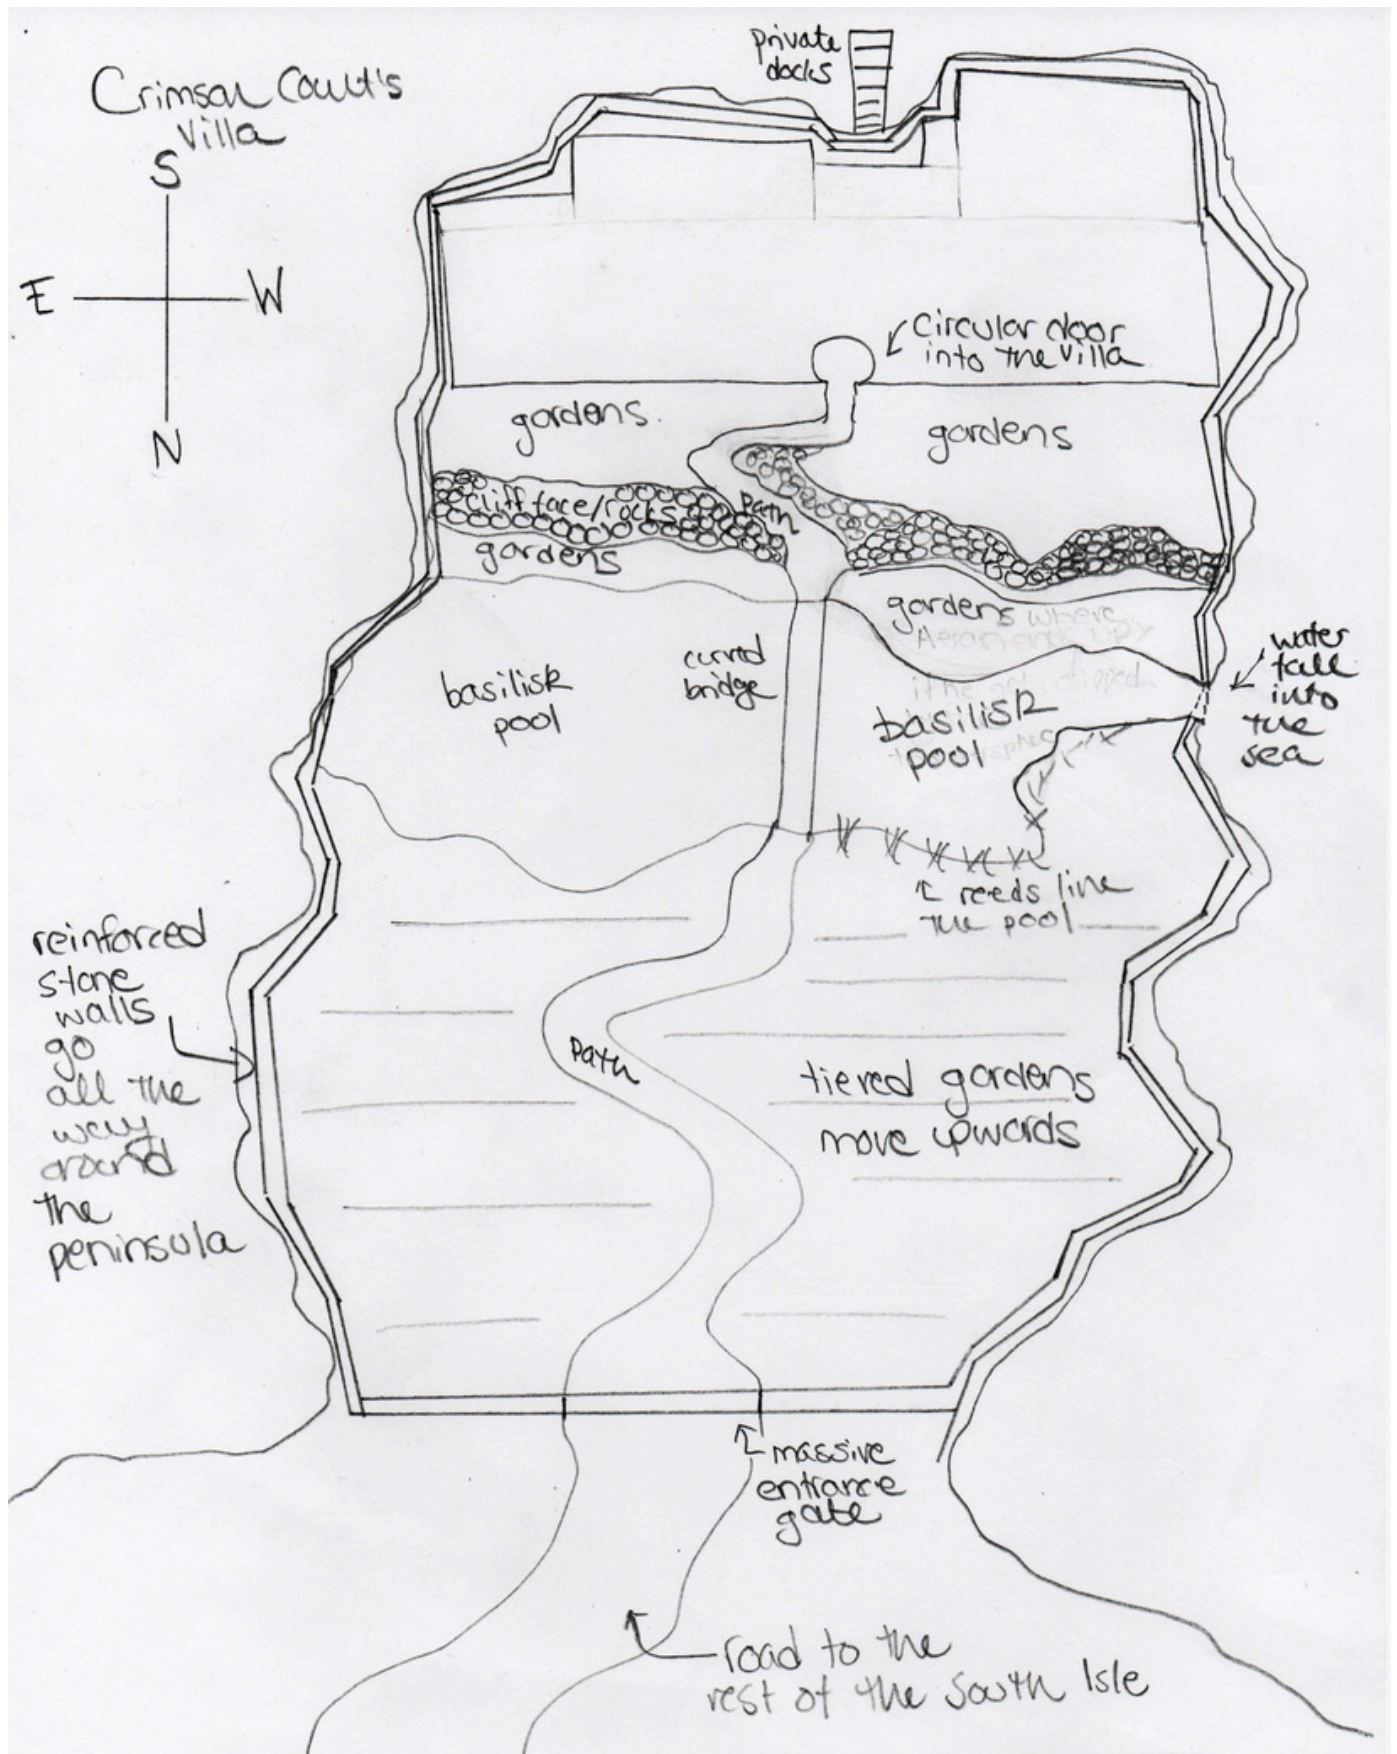 private
docks
Crimson Court's
Villa
S
E
W
N
Circular door
into the Villa
gardens.
gardens
Cliff face/rocks
Path
gardens
gardens where
Aeran ends up
if he gets dipped
curved
bridge
basilisk
pool
basilisk
pool
water
fall
into
the
sea
reeds line
the pool
reinforced
stone
walls
go
all the
way
around
the
peninsula
Path
tiered gardens
move upwards
massive
entrance
gate
road to the
rest of the South Isle